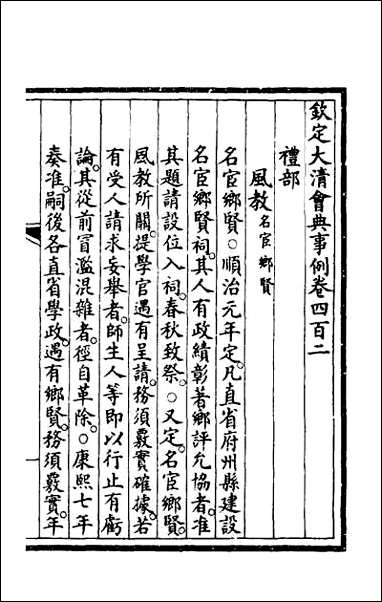 欽定大清會典事例卷四百二
禮部
風教名宦鄉賢
名宦鄉賢○順治元年定。凡直省府州縣建設
名宦鄉賢祠。其人有政績彰著鄉評允協者。准
其題請設位入祠。春秋致祭。○又定。名宦鄉賢。
風教所關。提學官遇有呈請。務須覈實確據。若
有受人請求妄舉者。師生人等即以行止有虧
論。其從前冒濫混雜者。徑自革除。○康熙七年
奏准。嗣後各直省學政。遇有鄉賢。務須覈實。年